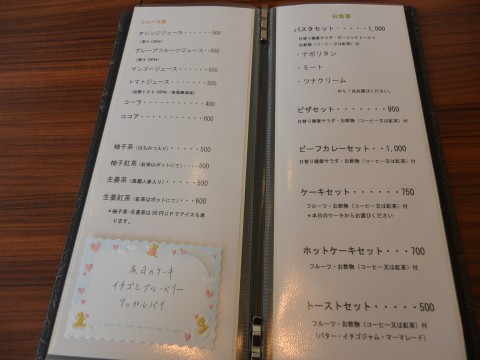 ジュース類
オレンジジュース・・・・・・500
(果汁100%)
グレープフルーツジュース・・500
(果汁100%)
マンゴージュース・・・・・・500
トマトジュース・・・・・・・500
コーラ・・・・・・・・・・・400
ココア・・・・・・・・・・・600
柚子茶(はちみつ入り)・・・・・500
柚子紅茶(紅茶はポットにて)・・・600
生姜茶(高麗人参入り)・・・・・500
生姜紅茶(紅茶はポットにて)・・・600
*柚子茶・生姜茶は50円UPでアイスも承ります。
本日のケーキ
イチゴとブルーベリー
アップルパイ
お食事
パスタセット・・・・・1,000
日替り健康サラダ・ガーリックトースト・
お飲物(コーヒー又は紅茶)付
・ナポリタン
・ミート
・ツナクリーム
から1品お選びください。
ピザセット・・・・・・・950
日替り健康サラダ・お飲物(コーヒー又は紅茶)付
ビーフカレーセット・・1,000
日替り健康サラダ・お飲物(コーヒー又は紅茶)付
ケーキセット・・・・・・750
フルーツ・お飲物(コーヒー又は紅茶)付
*本日のケーキからお選びください
ホットケーキセット・・・700
フルーツ・お飲物(コーヒー又は紅茶)付
トーストセット・・・・・500
フルーツ・お飲物(コーヒー又は紅茶)付
(バター・イチゴジャム・マーマレード)